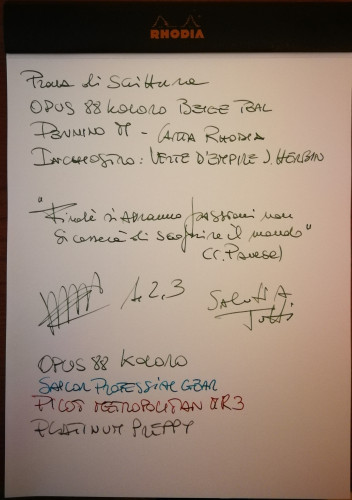 RHODIA
Prova di Scrittura
OPUS 88 KOLORO BEIGE TEAL
PENNINO M - CARTA RHODIA
INCHIOSTRO: VERTE D'EMPIRE J. HERBIN
"Finché si avranno passioni non
si cesserà di scoprire il mondo"
(C. Pavese)
1, 2, 3
Saluti A. Tutti
OPUS 88 KOLORO
SAILOR PROFESSIONAL GEAR
PILOT METROPOLITAN MR3
PLATINUM PREPPY